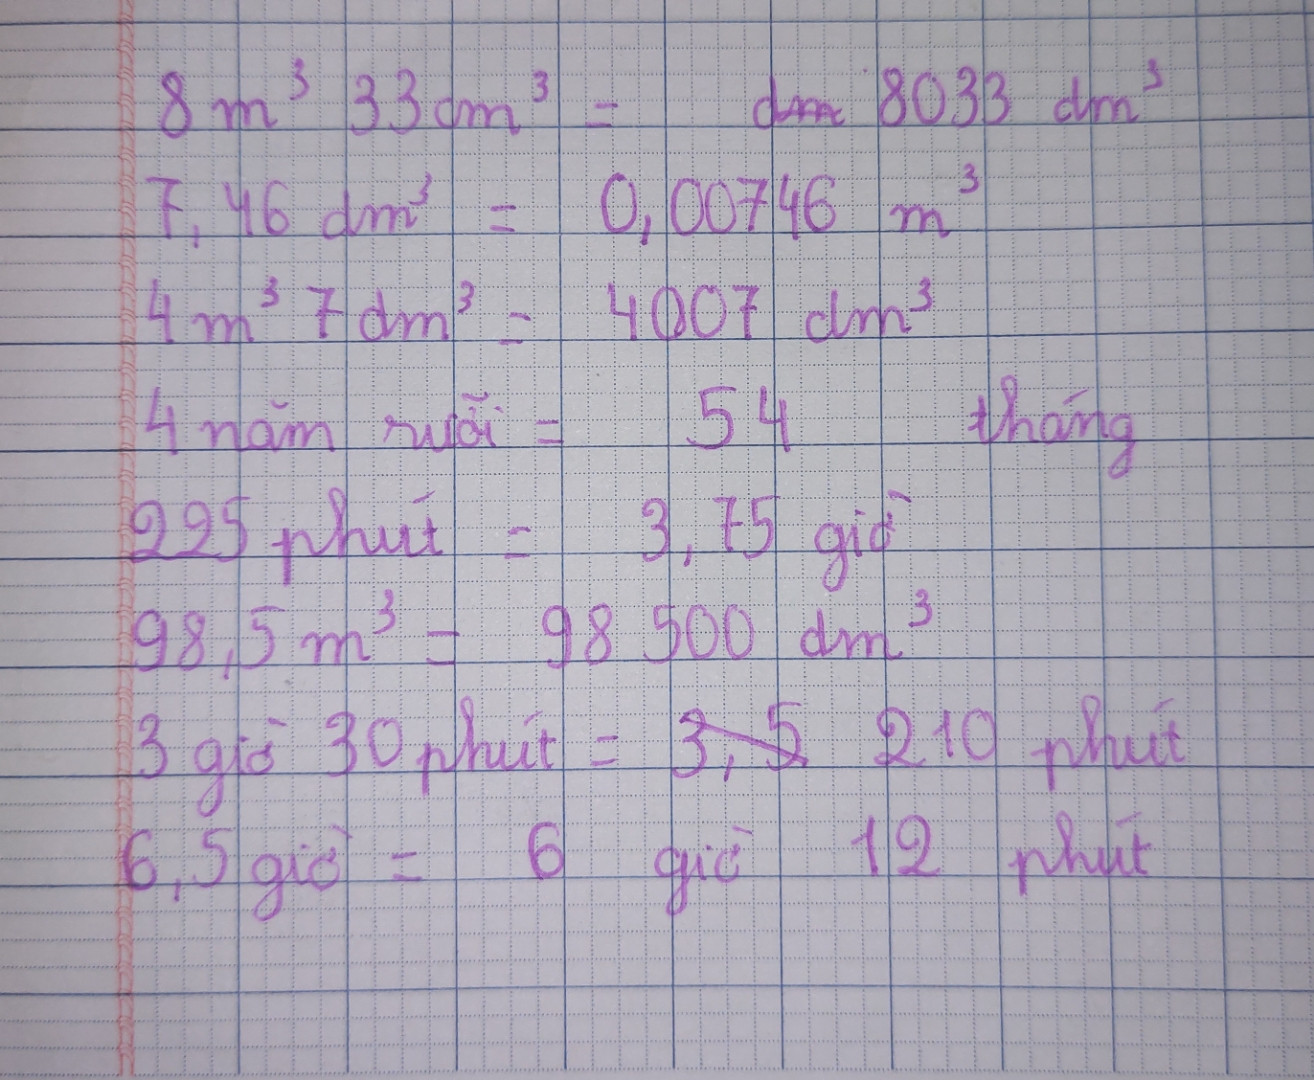 8 m³ 33 dm³ = dm 8033 dm³
7,46 dm³ = 0,00746 m³
4 m³ 7 dm³ = 4007 dm³
4 năm rưỡi = 54 tháng
225 phút = 3,75 giờ
98,5 m³ = 98 500 dm³
3 giờ 30 phút = 3,5 210 phút
6,5 giờ = 6 giờ 12 phút